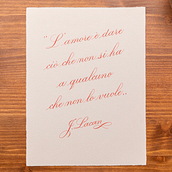 "L'amore è dare
ciò che non si ha
a qualcuno
che non lo vuole..
J. Lacan